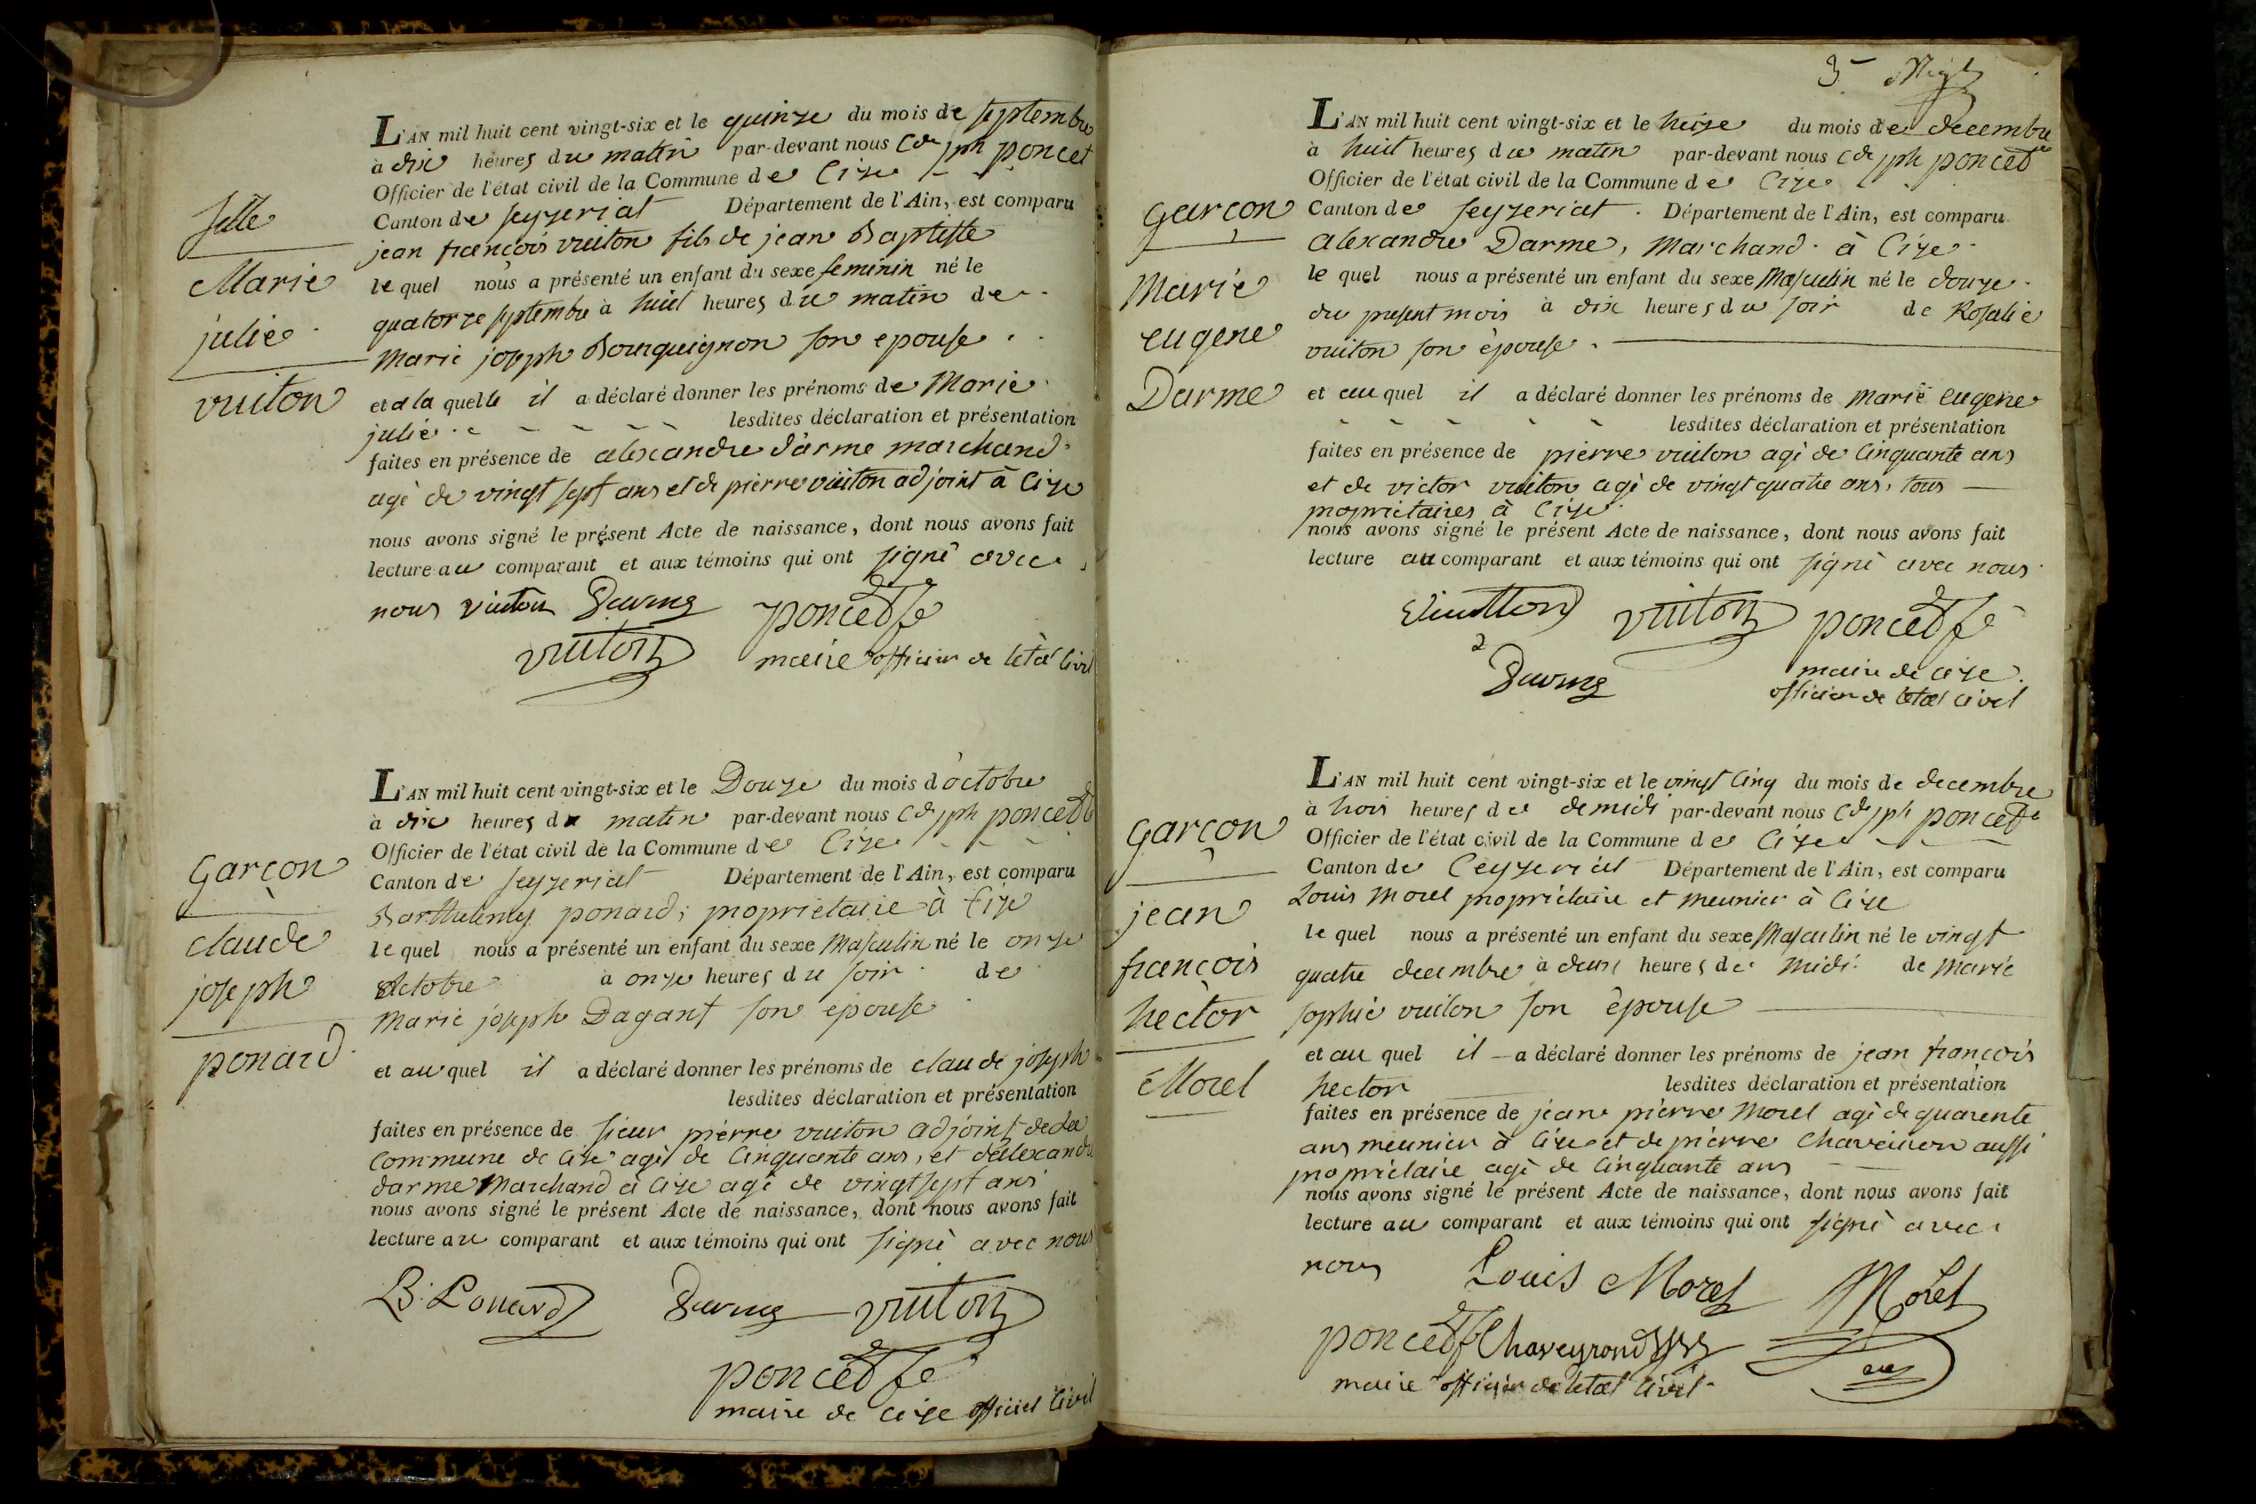 fille
Marie
julie
vuiton
L'AN mil huit cent vingt-six et le quinze du mois de septembre
à dix heures du matin par-devant nous Cde jph poncet
Officier de l'état civil de la Commune de Cize
Canton de seyzeriat Département de l'Ain, est comparu
jean françois vuiton fils de jean Baptiste
le quel nous a présenté un enfant du sexe feminin né le
quatorze septembre à huit heures du matin de
Marie joseph Bourguignon son epouse
et a la quelle il a déclaré donner les prénoms de Marie
julie lesdites déclaration et présentation
faites en présence de alexandre d'arme marchand
agé de vingt sept ans et de pierre vuiton adjoint à Cize
nous avons signé le présent Acte de naissance, dont nous avons fait
lecture au comparant et aux témoins qui ont signé avec
nous vuiton Darme poncet
vuiton maire officier de létat Civil
Garçon
claude
joseph
ponard
L'AN mil huit cent vingt-six et le Douze du mois d'octobre
à dix heures du matin par-devant nous Cde jph poncet
Officier de l'état civil de la Commune de Cize
Canton de seyzeriat Département de l'Ain, est comparu
Barthelemy ponard, propriétaire à Cize
le quel nous a présenté un enfant du sexe Masculin né le onze
octobre à onze heures du soir de
Marie joseph Dagant son epouse
et au quel il a déclaré donner les prénoms de claude joseph
lesdites déclaration et présentation
faites en présence de sieur pierre vuiton adjoint de la
Commune de Cize agé de Cinquante ans, et d'alexandre
darme Marchand à Cize agé de vingt sept ans
nous avons signé le présent Acte de naissance, dont nous avons fait
lecture au comparant et aux témoins qui ont signé avec nous
B. Ponard Darme vuiton
poncet
maire de Cize officier Civil
3
garçon
Marie
eugene
Darme
L'AN mil huit cent vingt-six et le treize du mois de decembre
à huit heures du matin par-devant nous Cde jph poncet
Officier de l'état civil de la Commune de Cize
Canton de seyzeriat Département de l'Ain, est comparu
alexandre Darme, Marchand à Cize
le quel nous a présenté un enfant du sexe Masculin né le douze
du present mois à dix heures du soir de Rosalie
vuiton son épouse
et au quel il a déclaré donner les prénoms de Marie eugene
lesdites déclaration et présentation
faites en présence de pierre vuiton agé de Cinquante ans
et de victor vuiton agé de vingt quatre ans, tous
propriétaires à Cize
nous avons signé le présent Acte de naissance, dont nous avons fait
lecture au comparant et aux témoins qui ont signé avec nous
Vuitton vuiton poncet
Darme maire de Cize
officier de létat Civil
garçon
jean
françois
hector
Morel
L'AN mil huit cent vingt-six et le vingt Cinq du mois de decembre
à trois heures de demidi par-devant nous Cde jph poncet
Officier de l'état civil de la Commune de Cize
Canton de Ceyzeriat Département de l'Ain, est comparu
Louis Morel propriétaire et meunier à Cize
le quel nous a présenté un enfant du sexe Masculin né le vingt
quatre decembre à deux heures de midi de Marie
sophie vuiton son épouse
et au quel il a déclaré donner les prénoms de jean françois
hector lesdites déclaration et présentation
faites en présence de jean pierre Morel agé de quarente
ans meunier à Cize et de pierre Chaveiron aussi
propriétaire agé de Cinquante ans
nous avons signé le présent Acte de naissance, dont nous avons fait
lecture au comparant et aux témoins qui ont signé avec
nous Louis Morel Morel
poncet Chaveyrond
maire officier de létat Civil